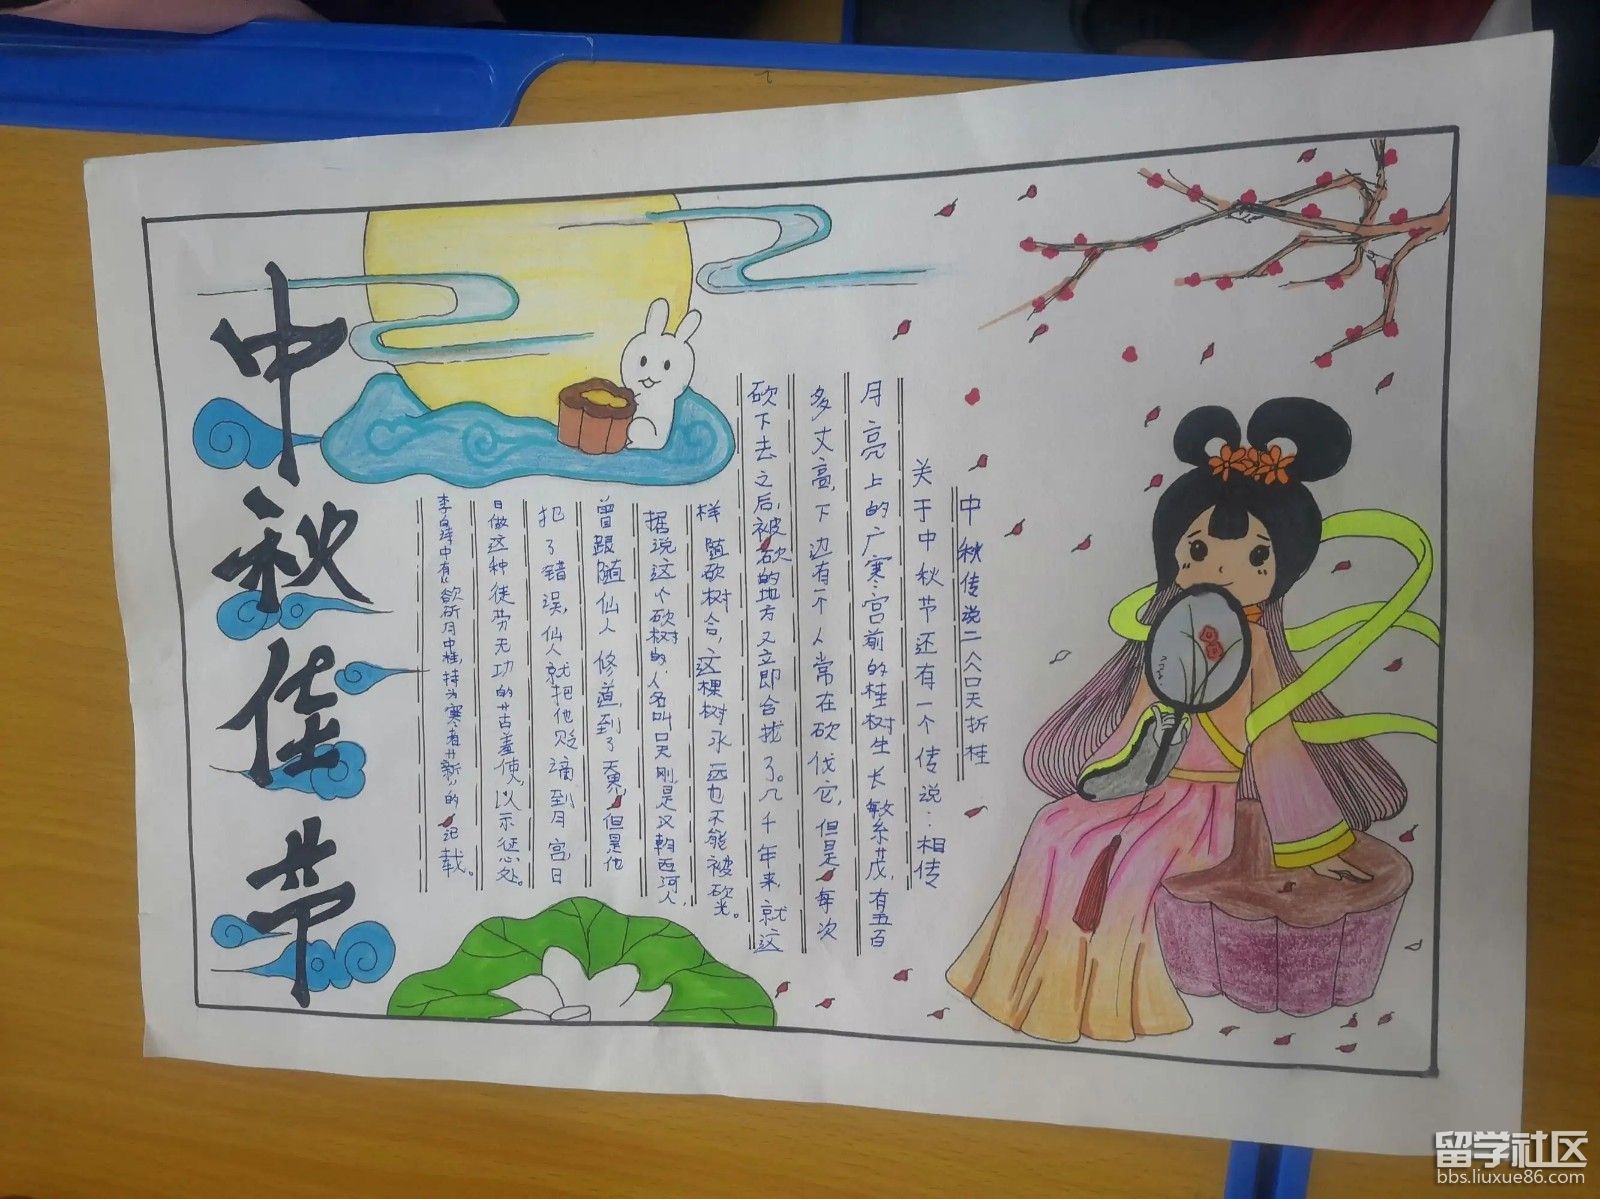 中秋传说二 吴折桂
关于中秋节还有一个传说：相传
月亮上的广寒宫前的桂树生长繁茂，有五百
多丈高，下边有一个人常在砍伐它，但是每次
砍下去之后，被砍的地方又立即合拢了。几千年来，就这
样随砍树合，这棵树永远也不能被砍光。
据说这个砍树的人名叫吴刚是汉朝西河人，
曾跟随仙人修道，到了天界，但是他
犯了错误，仙人就把他贬谪到月宫，日
日做这种徒劳无功的苦差使，以示惩处。
李白诗中有“欲斫月中桂，持为寒者薪”的记载。
中秋佳节
留学社区
bbs.liuxue86.com